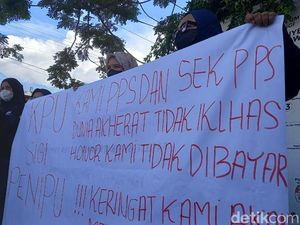 KPU KAMI PPS DAN SEK PPS
DUNIA AKHERAT TIDAK IKLHAS
SIGI HONOR KAMI TIDAK DIBAYAR
PENIPU !!! KERINGAT KAMI
detikcom